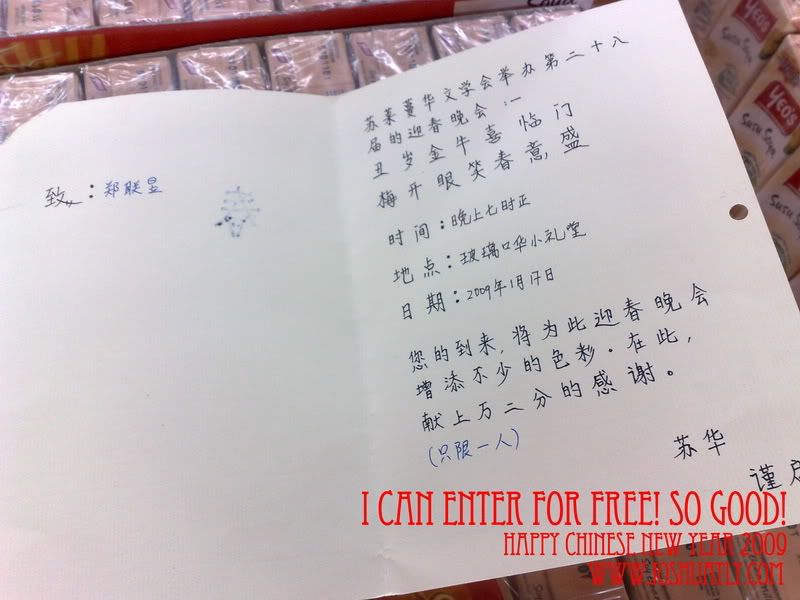 致：郑联昱
苏莱蔓华文学会举办第二十八
届的迎春晚会：一
丑岁金牛喜临门
梅开眼笑春意盛
时间：晚上七时正
地点：玻璃口华小礼堂
日期：2009年1月17日
您的到来，将为此迎春晚会
增添不少的色彩。在此，
献上万二分的感谢。
(只限一人)
苏华
谨启
I CAN ENTER FOR FREE! SO GOOD!
HAPPY CHINESE NEW YEAR 2009
WWW.JOSHUATLY.COM
YEO'S
Susu Soya
YEO'S
Susu Soya